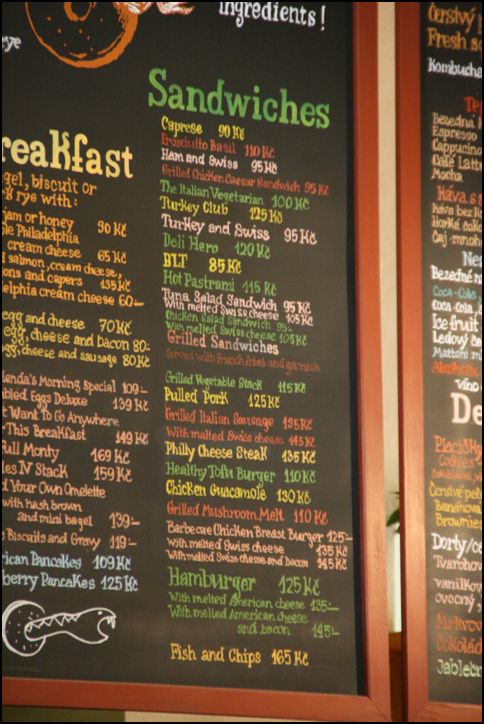 ingredients!
Sandwiches
Caprese 90 Kč
Prosciutto Basil 110 Kč
Ham and Swiss 95 Kč
Grilled Chicken Caesar Sandwich 95 Kč
The Italian Vegetarian 100 Kč
Turkey Club 125 Kč
Turkey and Swiss 95 Kč
Deli Hero 120 Kč
BLT 85 Kč
Hot Pastrami 115 Kč
Tuna Salad Sandwich 95 Kč
With melted Swiss cheese 105 Kč
Chicken Salad Sandwich 95.-
With melted Swiss cheese 105 Kč
Grilled Sandwiches
Served with French fries and garnish
Grilled Vegetable Stack 115 Kč
Pulled Pork 125 Kč
Grilled Italian Sausage 135 Kč
With melted Swiss cheese 145 Kč
Philly Cheese Steak 135 Kč
Healthy Tofu Burger 110 Kč
Chicken Guacamole 130 Kč
Grilled Mushroom Melt 110 Kč
Barbecue Chicken Breast Burger 125-
With melted Swiss cheese 135 Kč
With melted Swiss cheese and Bacon 145 Kč
Hamburger 125 Kč
With melted American cheese 135.-
With melted American cheese
and bacon 145.-
Fish and Chips 165 Kč
reakfast
gel, biscuit or
rye with:
jam or honey 90 Kč
le Philadelphia
cream cheese 65 Kč
salmon, cream cheese,
ons and capers 135 Kč
delphia cream cheese 60.-
egg and cheese 70 Kč
egg, cheese and bacon 80-
egg, cheese and sausage 80 Kč
enda's Morning Special 109.-
bled Eggs Deluxe 139 Kč
t Want To Go Anywhere
This Breakfast 149 Kč
ull Monty 169 Kč
les IV Stack 159 Kč
d Your Own Omelette
with hash brown
and mini bagel 139.-
Biscuits and Gravy 119.-
rican Pancakes 109 Kč
berry Pancakes 125 Kč
Čerstvý
Fresh
Kombucha
Bezedná
Espresso
Cappuccino
Café Latte
Mocha
Káva s
Káva bez
Horká čoko
Čaj mnoho
Bezedné
Coca-Cola
Coca-Cola
Ice fruit
Ledový
Mattoni
Alkoholic
Víno
De
Placičky
Cookies
Čerstvé
Banánová
Brownies
Dorty/c
Tvaroho
vanilkov
ovocný
Mrkvov
Čokolád
Jableč